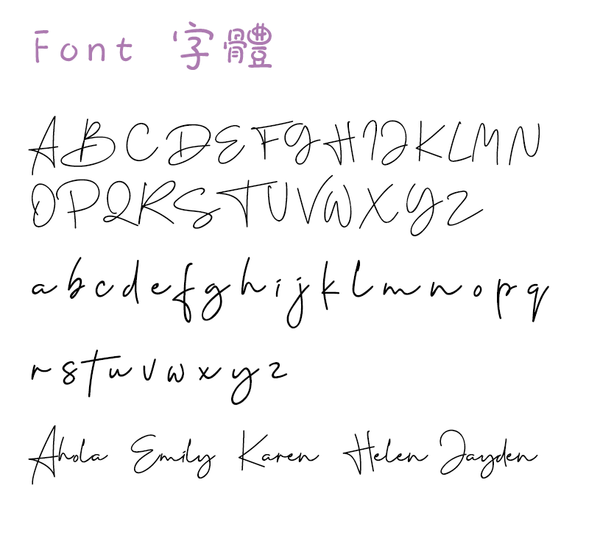 Font 字體
A B C D E F G H I J K L M N
O P Q R S T U V W X Y Z
a b c d e f g h i j k l m n o p q
r s t u v w x y z
Ahola Emily Karen Helen Jayden